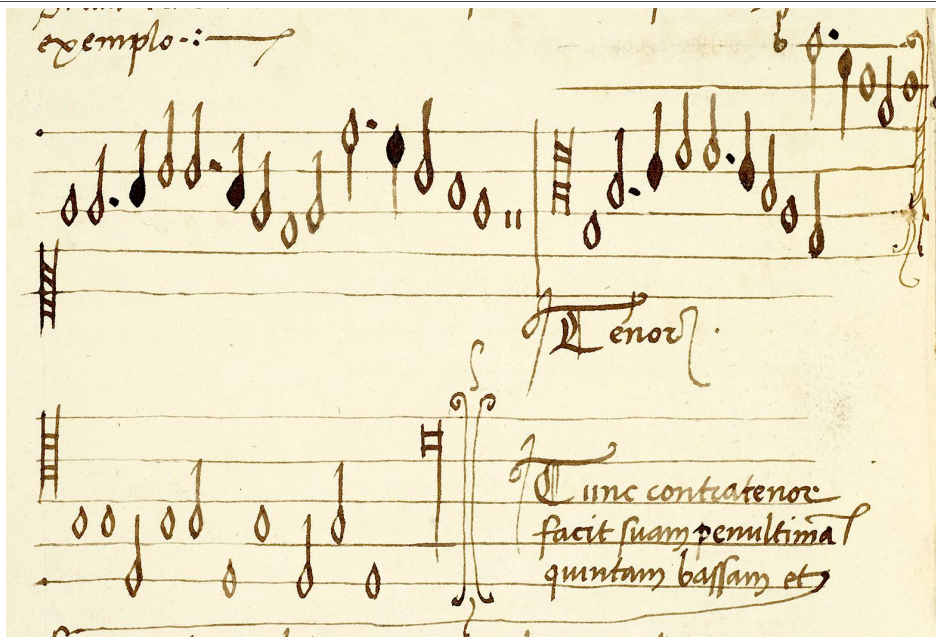 exemplo
b
Tenor
Tunc contratenor
facit suam penultimā
quintam bassam et